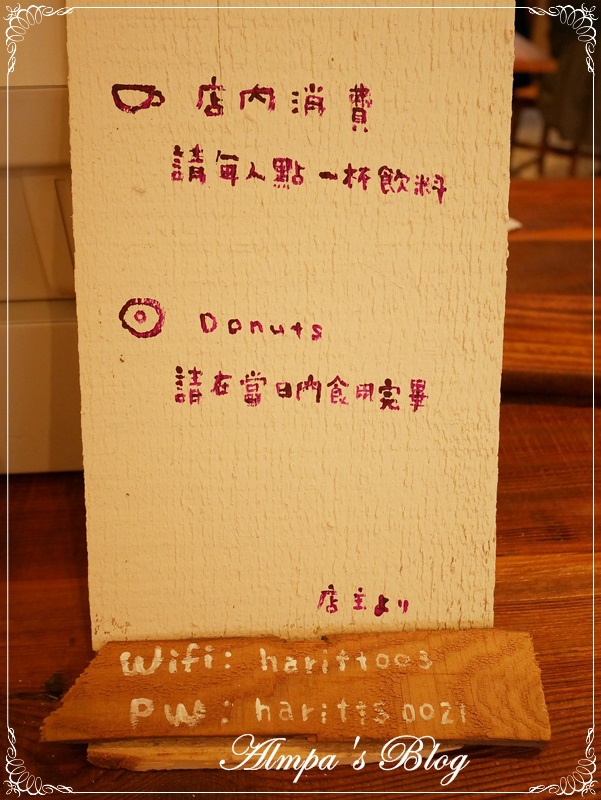 店內消費
請每人點一杯飲料
Donuts
請在當日內食用完畢
店主より
Wifi: haritts003
PW: haritts0021
Almpa's Blog